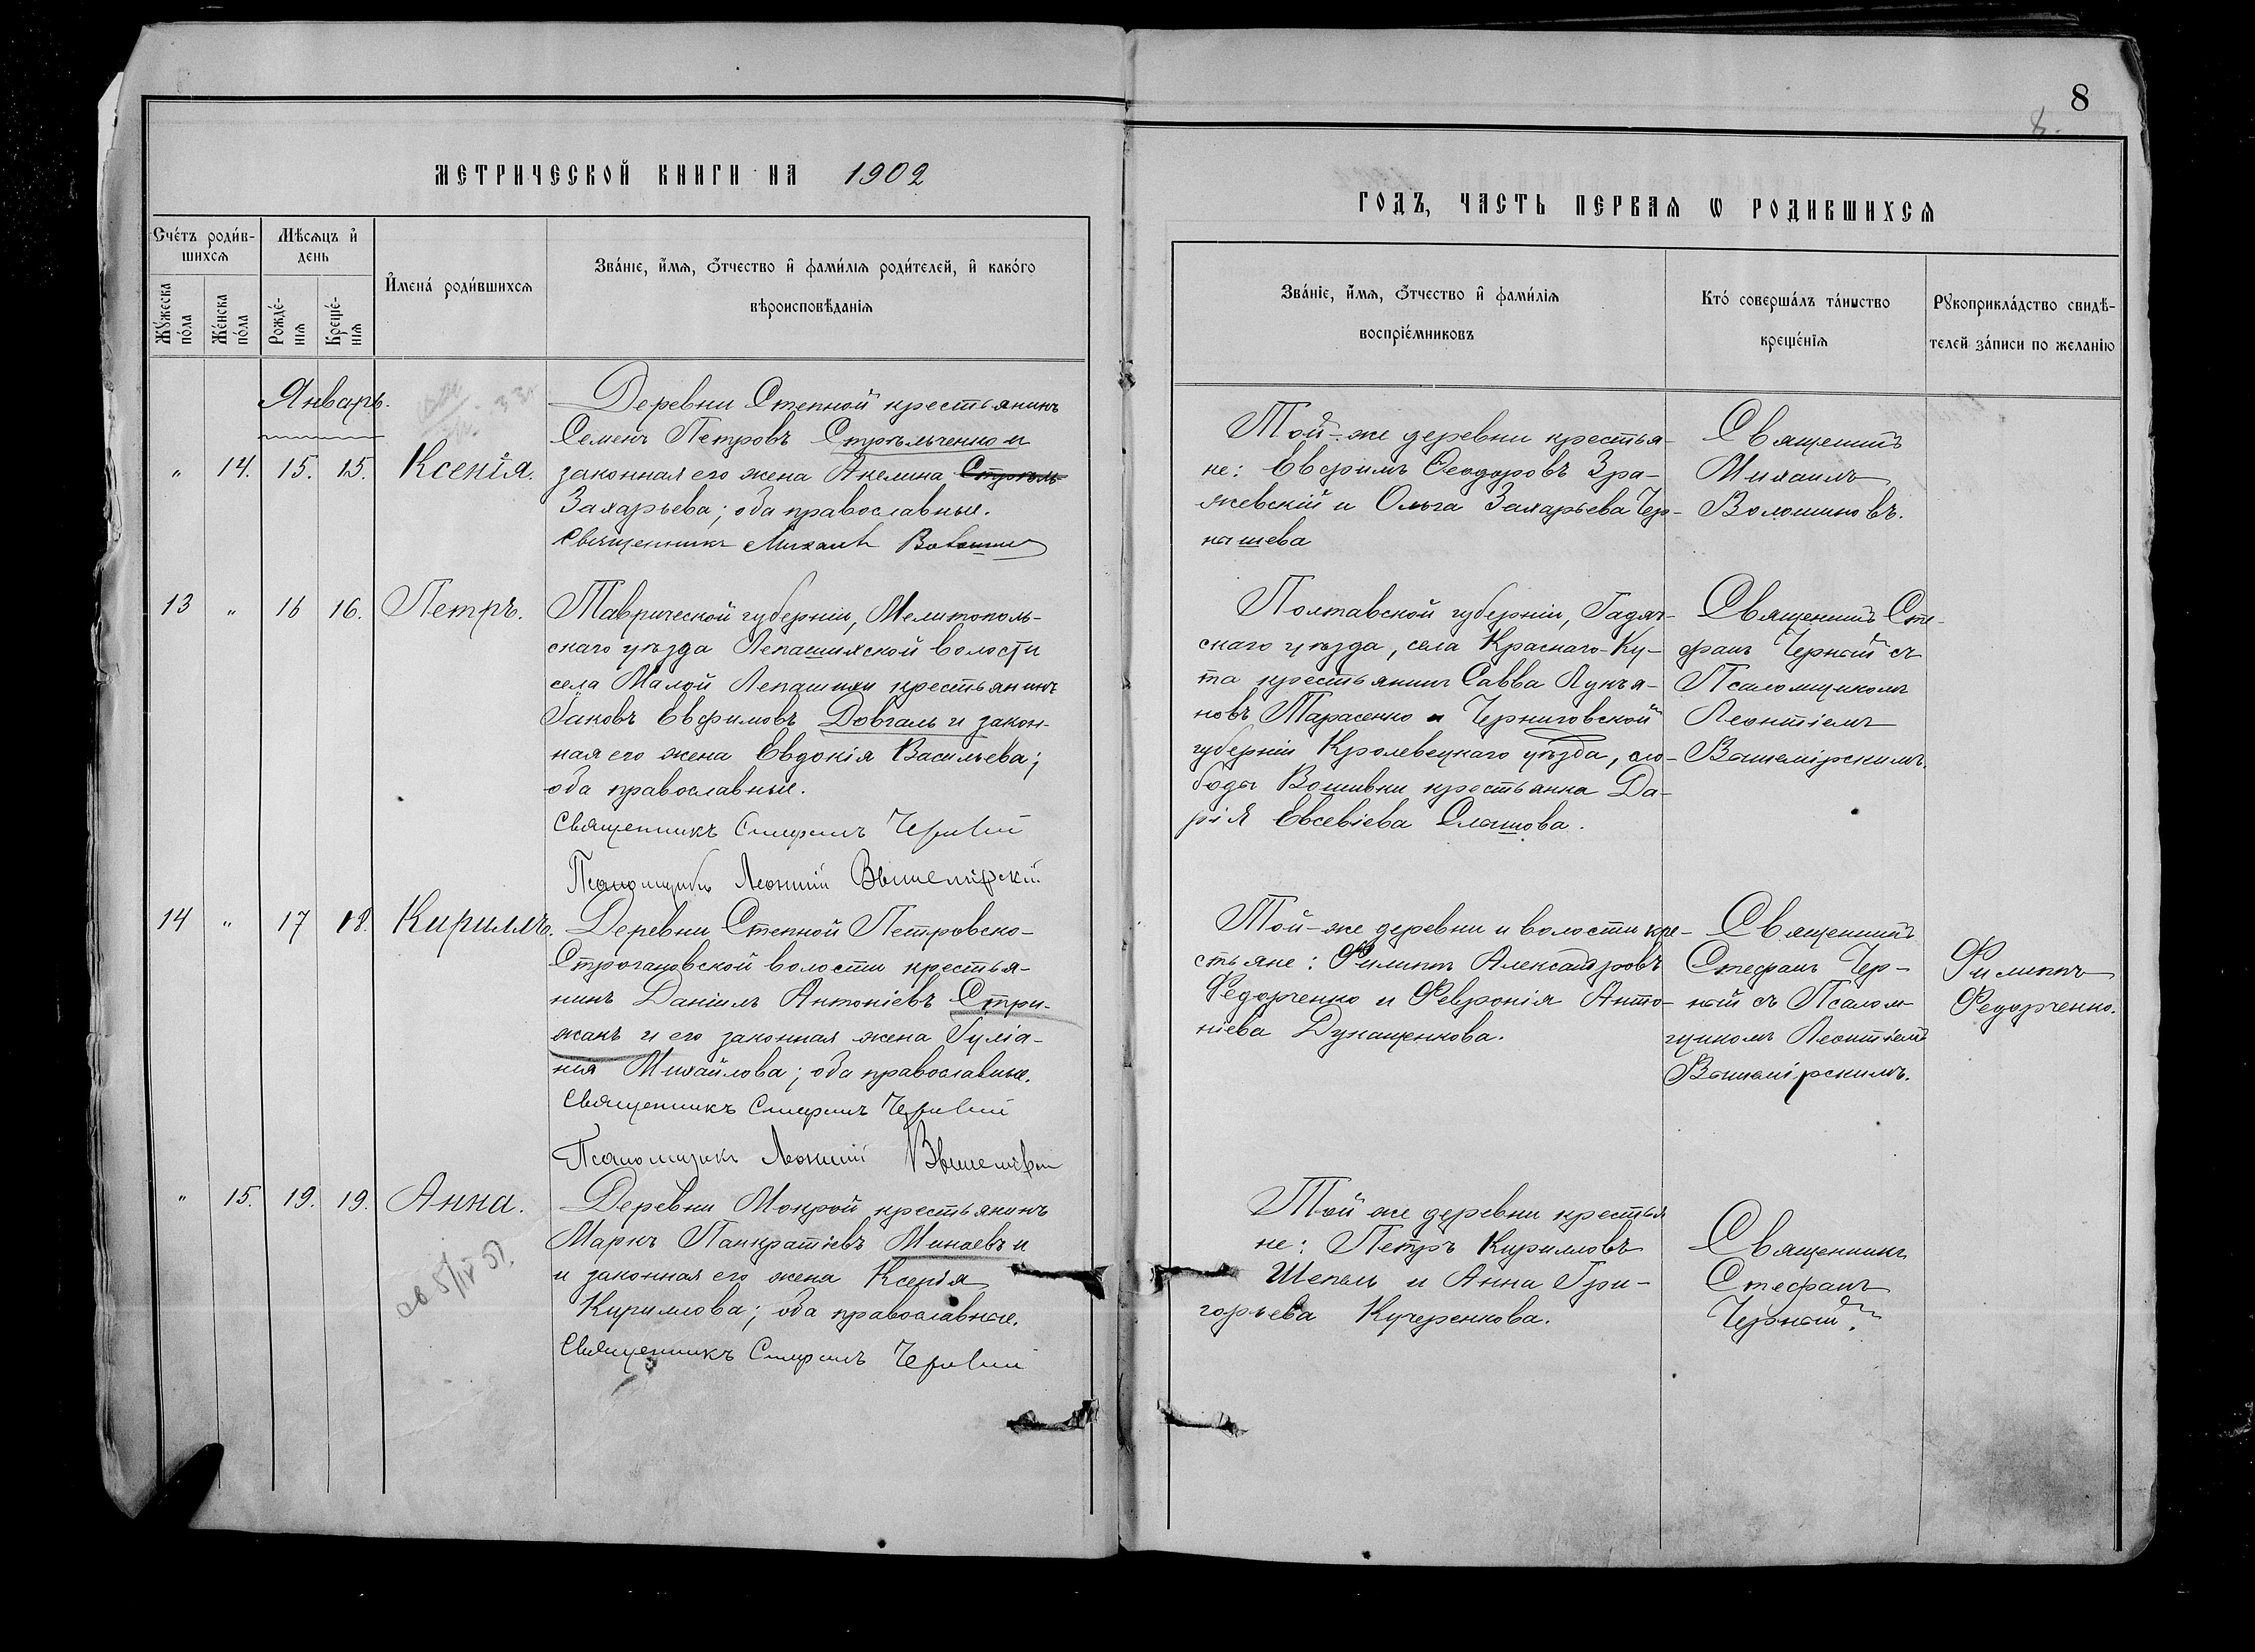 8
8.
МЕТРИЧЕСКОЙ КНИГИ НА 1902
ГОДЪ, ЧАСТЬ ПЕРВАЯ Ѡ РОДИВШИХСЯ
Сче́тъ роди́в-
шихсѧ
Мѣсѧцъ и҆
день
Мꙋ́жеска
по́ла
Же́нска
по́ла
Рожде́-
нїѧ
Креще́-
нїѧ
И҆мена́ роди́вшихсѧ
Зва́нїе, и҆́мѧ, ѻ҆́тчество и҆ фами́лїѧ роди́телей, и҆ како́го
вѣроисповѣ́данїѧ
Зва́нїе, и҆́мѧ, ѻ҆́тчество и҆ фами́лїѧ
воспрїе́мниковъ
Кто́ соверша́лъ та́инство
креще́нїѧ
Рꙋкоприкла́дство свидѣ́-
телей за́писи по жела́нїю
Январь.
" 14. 15. 15. Ксенія.
Деревни Степной крестьянинъ
Семенъ Петровъ Стрѣльченко и
законная его жена Акелина Стрѣль
Захарьева; оба православные.
Священникъ Михаилъ
Той-же деревни крестья-
не: Евфимъ Ѳеодоровъ Зра-
жевскій и Ольга Захарьева Чер-
нашева
Священникъ
Михаилъ
Волошиновъ.
13 " 16 16. Петръ.
Таврической губерніи, Мелитополь-
скаго уѣзда Лепашихской волости
села Малой Лепашихи крестьянинъ
Іаковъ Евфимовъ Довгаль и закон-
ная его жена Евдокія Васильева;
оба православные.
Священникъ Стефанъ Черный
Псаломщикъ Леонтій Вышемірскій
Полтавской губерніи, Гадяч-
скаго уѣзда, села Краснаго-Ку-
та крестьянинъ Савва Лукья-
новъ Тарасенко и Черниговской
губерніи Кролевецкаго уѣзда, сло-
боды Вошивки крестьянка Да-
рія Евсевіева Слашова.
Священникъ Сте-
фанъ Черный съ
Псаломщикомъ
Леонтіемъ
Вышемірскимъ.
14 " 17 18. Кириллъ.
Деревни Степной Петровско-
Строгановской волости крестья-
нинъ Даніилъ Антоніевъ Стри-
жакъ и его законная жена Іуліа-
нія Михайлова; оба православные.
Священникъ Стефанъ Черный
Псаломщикъ Леонтій Вышемірскій
Той-же деревни и волости кре-
стьяне: Филиппъ Александровъ
Федорченко и Февронія Анто-
ніева Дукащенкова.
Священникъ
Стефанъ Чер-
ный съ Псалом-
щикомъ Леонтіемъ
Вышемірскимъ.
Филиппъ
Федорченко.
" 15. 19. 19. Анна.
Деревни Мокрой крестьянинъ
Маркъ Панкратіевъ Минаевъ и
и законная его жена Ксенія
Кириллова; оба православные.
Священникъ Стефанъ Черный
Той же деревни крестья
не: Петръ Кирилловъ
Шепель и Анна Гри-
горьева Кучеренкова.
Священникъ
Стефанъ
Черный.